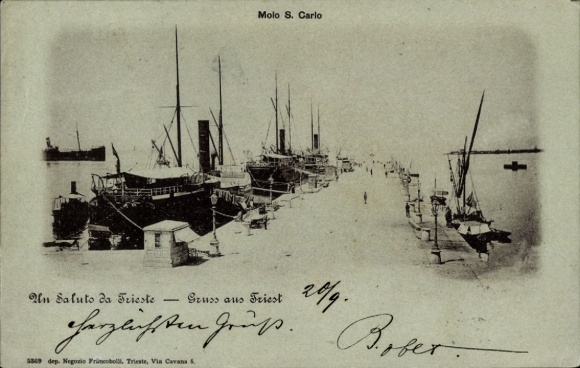 Molo S. Carlo
Un Saluto da Trieste — Gruss aus Triest
20/9.
herzlichsten Gruß.
5369 dep. Negozio Früncobolli, Trieste, Via Cavana 6.